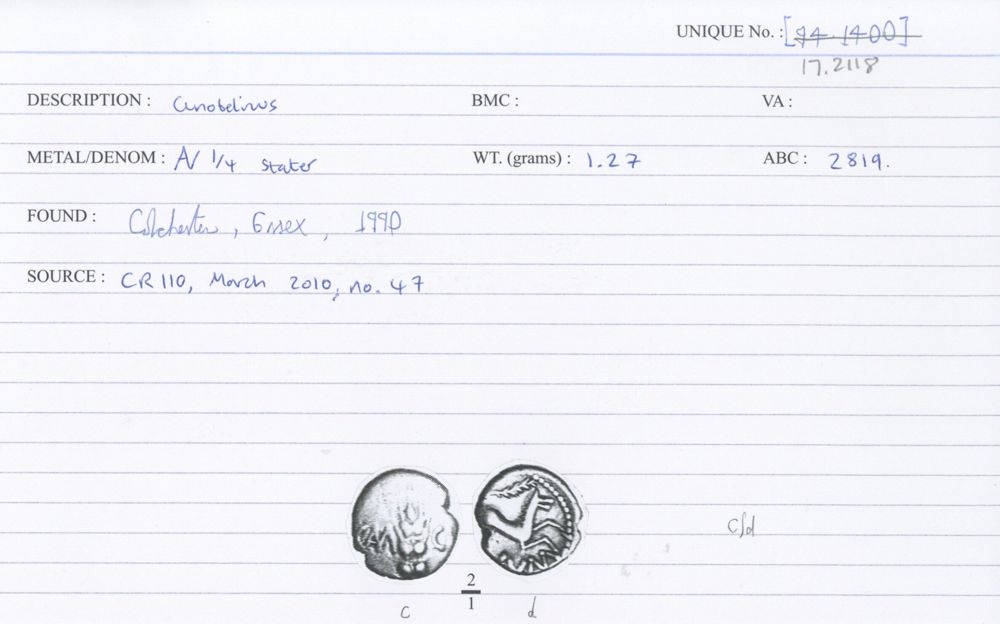 UNIQUE No. : [94.1400]
17.2118
DESCRIPTION : Cunobelinus BMC : VA :
METAL/DENOM : AV 1/4 stater WT. (grams) : 1.27 ABC : 2819.
FOUND : Colchester, Essex, 1990
SOURCE : CR 110, March 2010, no. 47
CAM C
c/d
2
1
c d